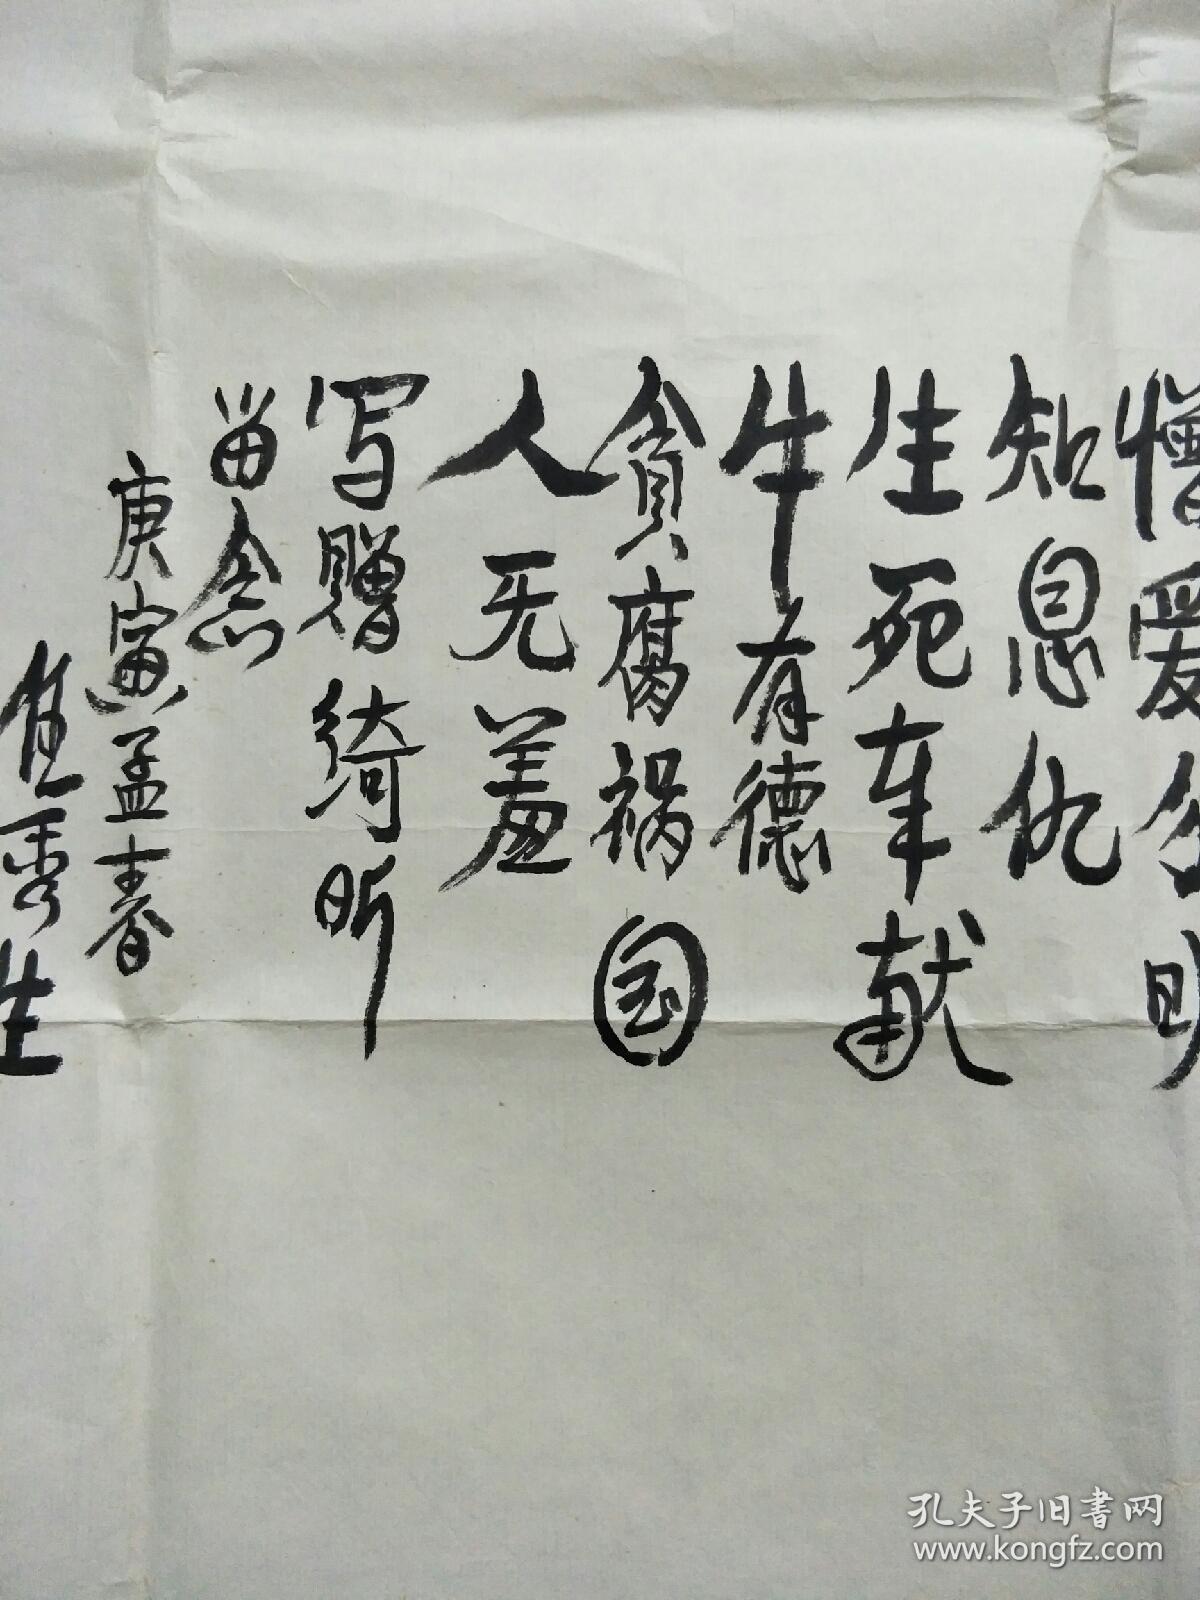 憎爱分明
知恩仇
生死奉献
牛有德
貪腐祸国
人无羞
写赠绮昕
留念
庚寅孟春
秀生
孔夫子旧書网
www.kongfz.com